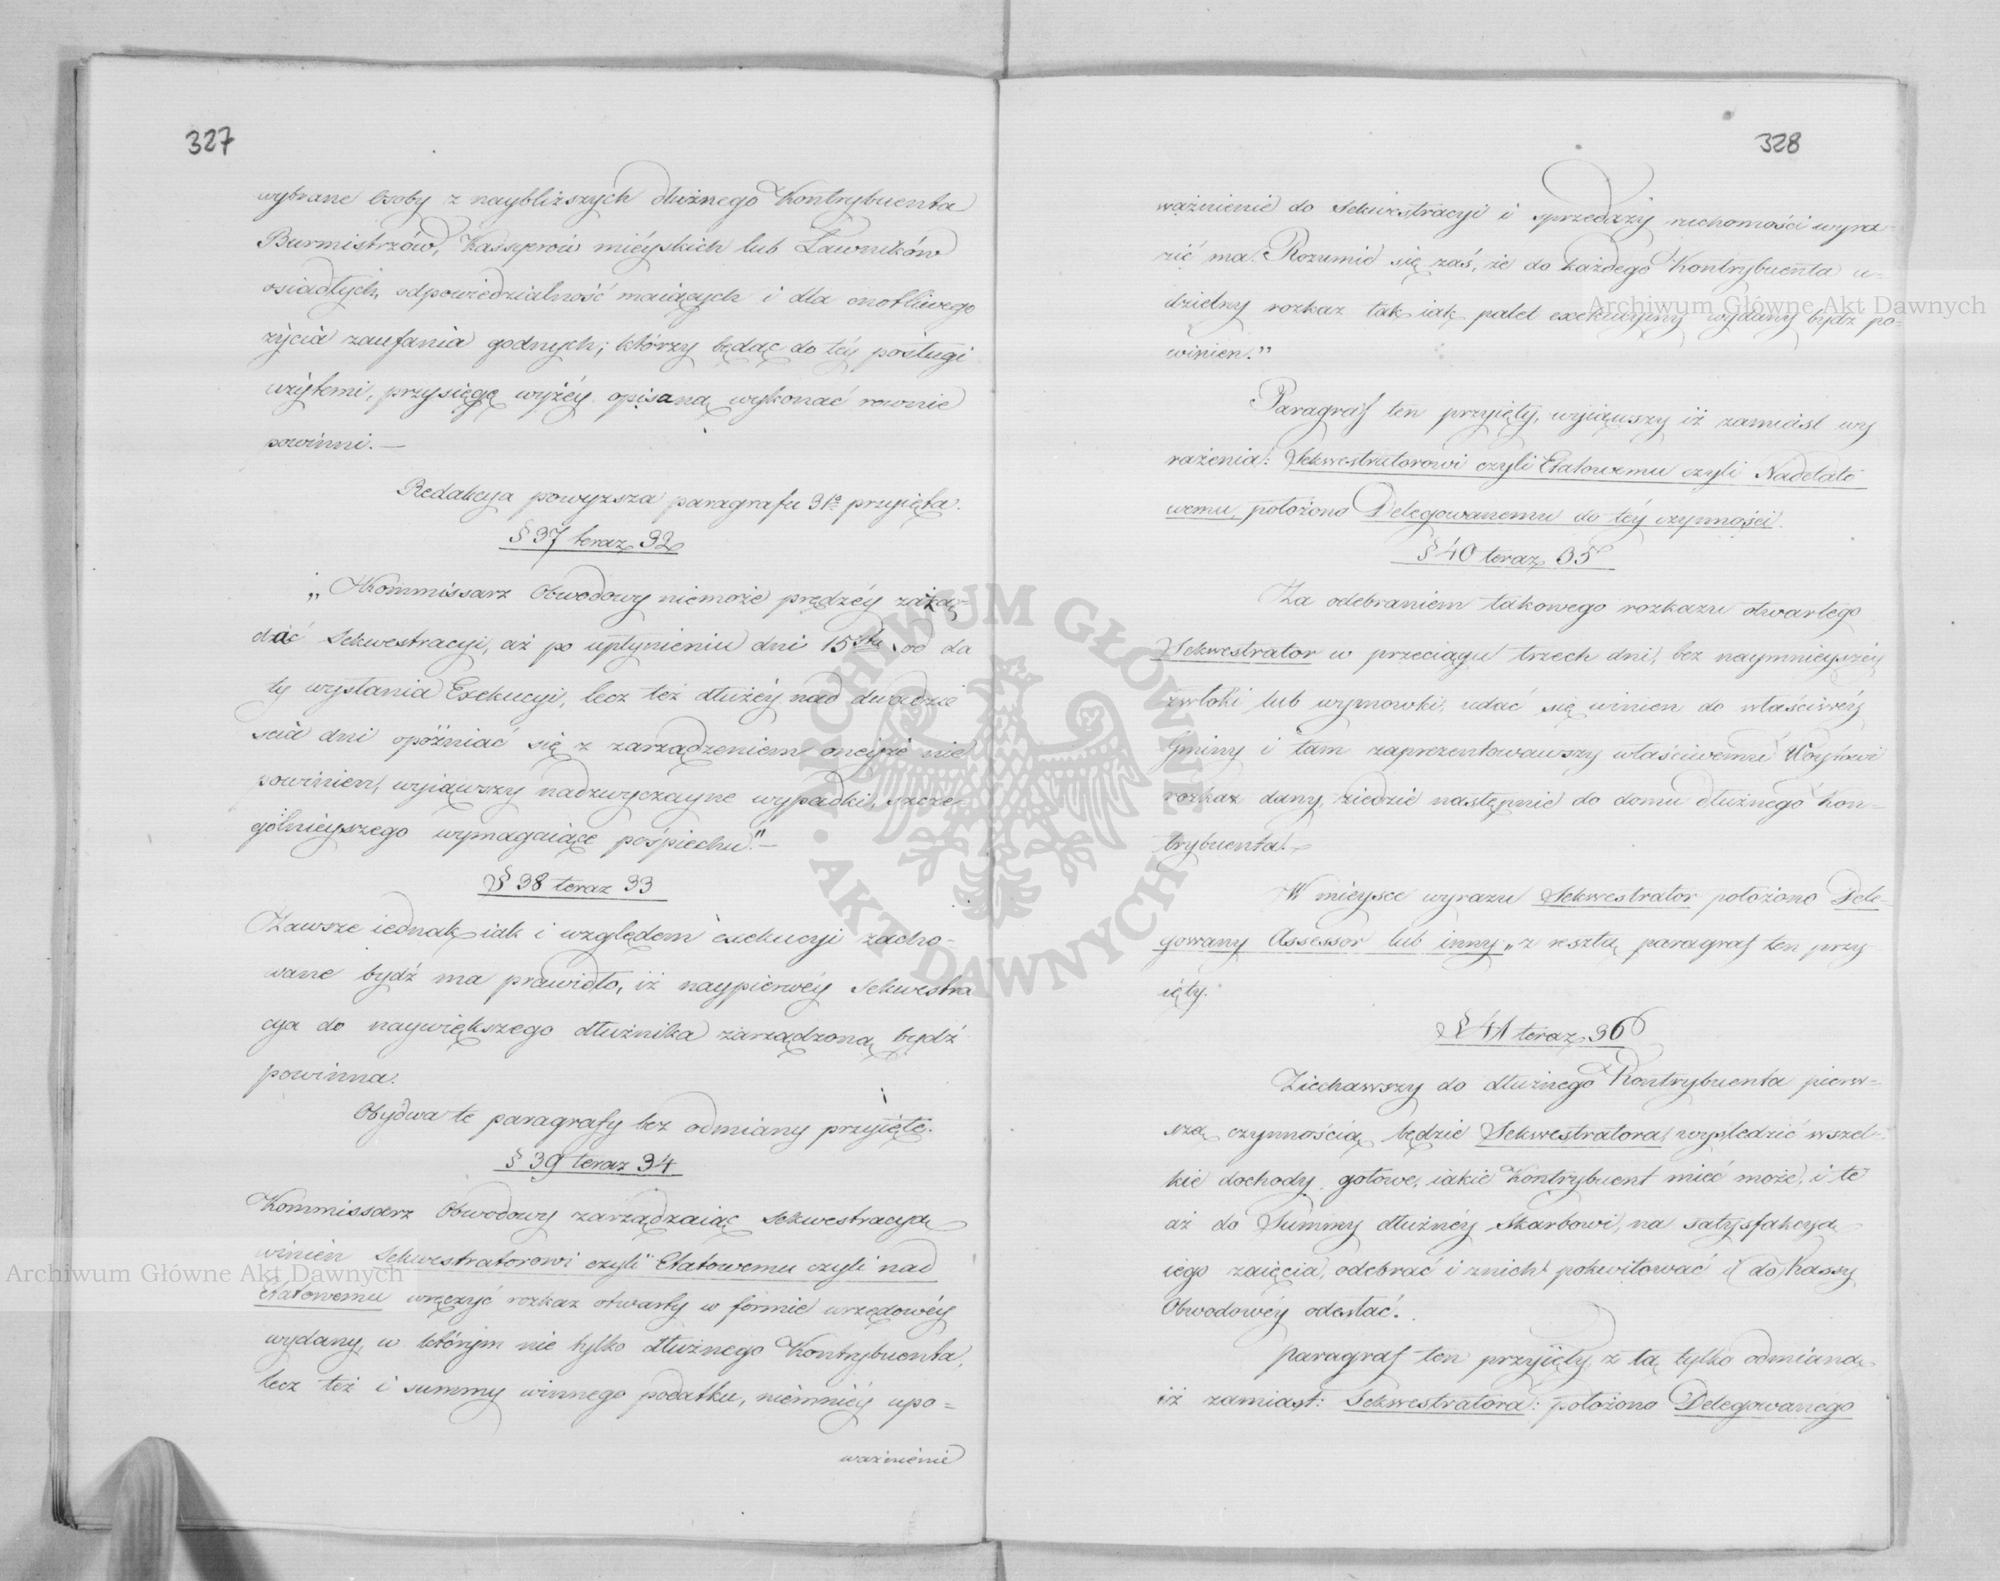 327
wybrane osoby z naybliższych dłużnego Kontrybuenta
Burmistrzów, Kassyerów mieyskich lub Ławników
osiadłych, odpowiedzialność maiących i dla cnotliwego
życia zaufania godnych; którzy będąc do téy posługi
użytemi, przysięgę wyżéy opisaną wykonać rownie
powinni. —
Redakcya powyższa paragrafu 31º przyięta.
§ 37 teraz 32
„Kommissarz Obwodowy niemoże prędzéy zażą-
dać Sekwestracyi, aż po upłynieniu dni 15stu od da
ty wysłania Exekucyi, lecz też dłużéy nad dwadzie
ścia dni opóźniać się z zarządzeniem oneyże nie
powinien, wyiąwszy nadzwyczayne wypadki, szcze-
gólnieyszego wymagaiące pośpiechu." —
§ 38 teraz 33
Zawsze iednak, iak i względem exekucyi zacho-
wane bydź ma prawidło, iż naypierwéy Sekwestra
cya do naywiększego dłużnika zarządzoną bydź
powinna.
Obydwa te paragrafy bez odmiany przyięte.
§ 39 teraz 34
Kommissarz Obwodowy zarządzaiąc Sekwestracyą
winien Sekwestratorowi czyli Etatowemu czyli nad
etatowemu wręczyć rozkaz otwarty w formie urzędowéy
wydany, w którym nie tylko dłużnego Kontrybuenta,
lecz też i summy winnego podatku, niemniéy upo=
ważnienie
328
ważnienie do Sekwestracyi i sprzedaży ruchomości wyra-
zić ma. Rozumie się zaś, że do każdego Kontrybuenta u-
dzielny rozkaz tak iak palet exekucyiny wydany bydź po-
winien."
Paragraf ten przyięty, wyiąwszy iż zamiast wy
rażenia: Sekwestratorowi czyli Etatowemu czyli Nadetato
wemu, położono Delegowanemu do téy czynności.
§ 40 teraz 35
Za odebraniem takowego rozkazu otwartego
Sekwestrator w przeciągu trzech dni, bez naymnieyszéy
zwłoki lub wymowki, udać się winien do właściwéy
Gminy i tam zaprezentowawszy właściwemu Wóytowi
rozkaz dany, ziedzie następnie do domu dłużnego Kon-
trybuenta.
W mieysce wyrazu Sekwestrator położono Dele-
gowany Assessor lub inny „z resztą paragraf ten przy
ięty.
§ 41 teraz 36
Ziechawszy do dłużnego Kontrybuenta pierw-
szą czynnością będzie Sekwestratora, wyśledzić wszel-
kie dochody gotowe, iakie Kontrybuent mieć może, i te
aż do Summy dłużnéy Skarbowi, na satysfakcyą
iego zaięcia, odebrać i znich pokwitować i do Kassy
Obwodowéy odesłać.
Paragraf ten przyięty z tą tylko odmianą
iż zamiast: Sekwestratora: położono Delegowanego
Archiwum Główne Akt Dawnych
Archiwum Główne Akt Dawnych
ARCHIWUM GŁÓWNE • AKT DAWNYCH •